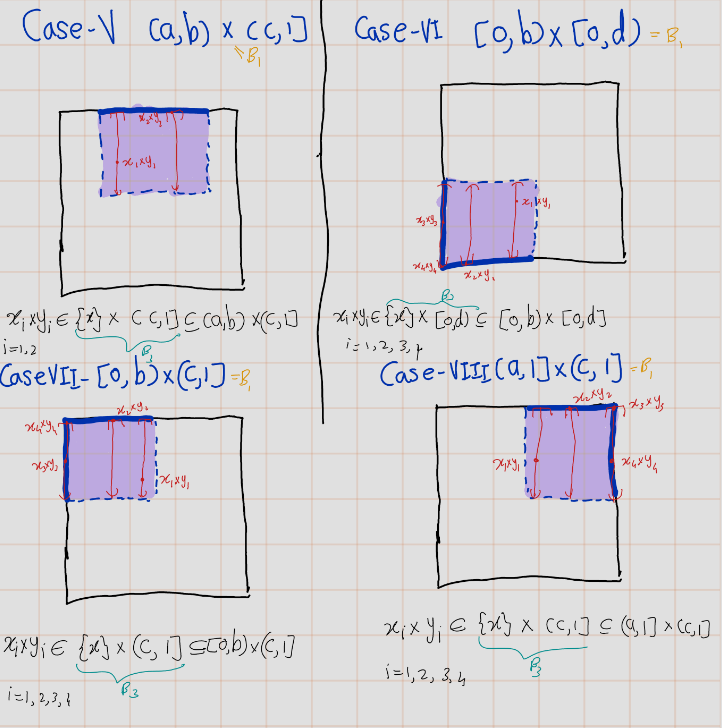 Case-V (a,b) × (c,1]
=B₁
x₂×y₂
x₁×y₁
xᵢ×yᵢ ∈ {x} × (c,1] ⊆ (a,b) × (c,1]
B₃
i=1,2
Case-VI [0,b) × [0,d) = B₁
x₁×y₁
x₃×y₃
x₄×y₄
x₂×y₂
B₃
xᵢ×yᵢ ∈ {x} × [0,d) ⊆ [0,b) × [0,d]
i=1,2,3,4
Case VII- [0,b) × (c,1] = B₁
x₂×y₂
x₄×y₄
x₃×y₃
x₁×y₁
xᵢ×yᵢ ∈ {x} × (c,1] ⊆ [0,b) × (c,1]
B₃
i=1,2,3,4
Case-VIII (a,1] × (c,1] = B₁
x₂×y₂
x₃×y₃
x₁×y₁
x₄×y₄
xᵢ×yᵢ ∈ {x} × (c,1] ⊆ (a,1] × (c,1]
B₃
i=1,2,3,4